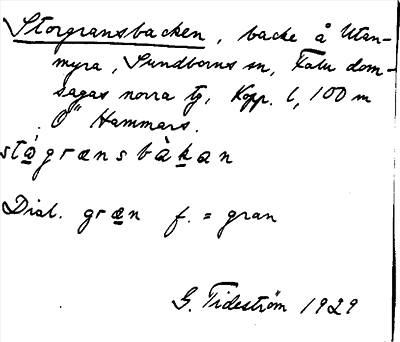 Storgransbacken, backe å Utan-
myra, Sundborns sn, Falu dom-
sagas norra tg, Kopp. l, 100 m
O" Hammars.
stågrænsbàkan
Dial. græn f. = gran
G. Tideström 1929